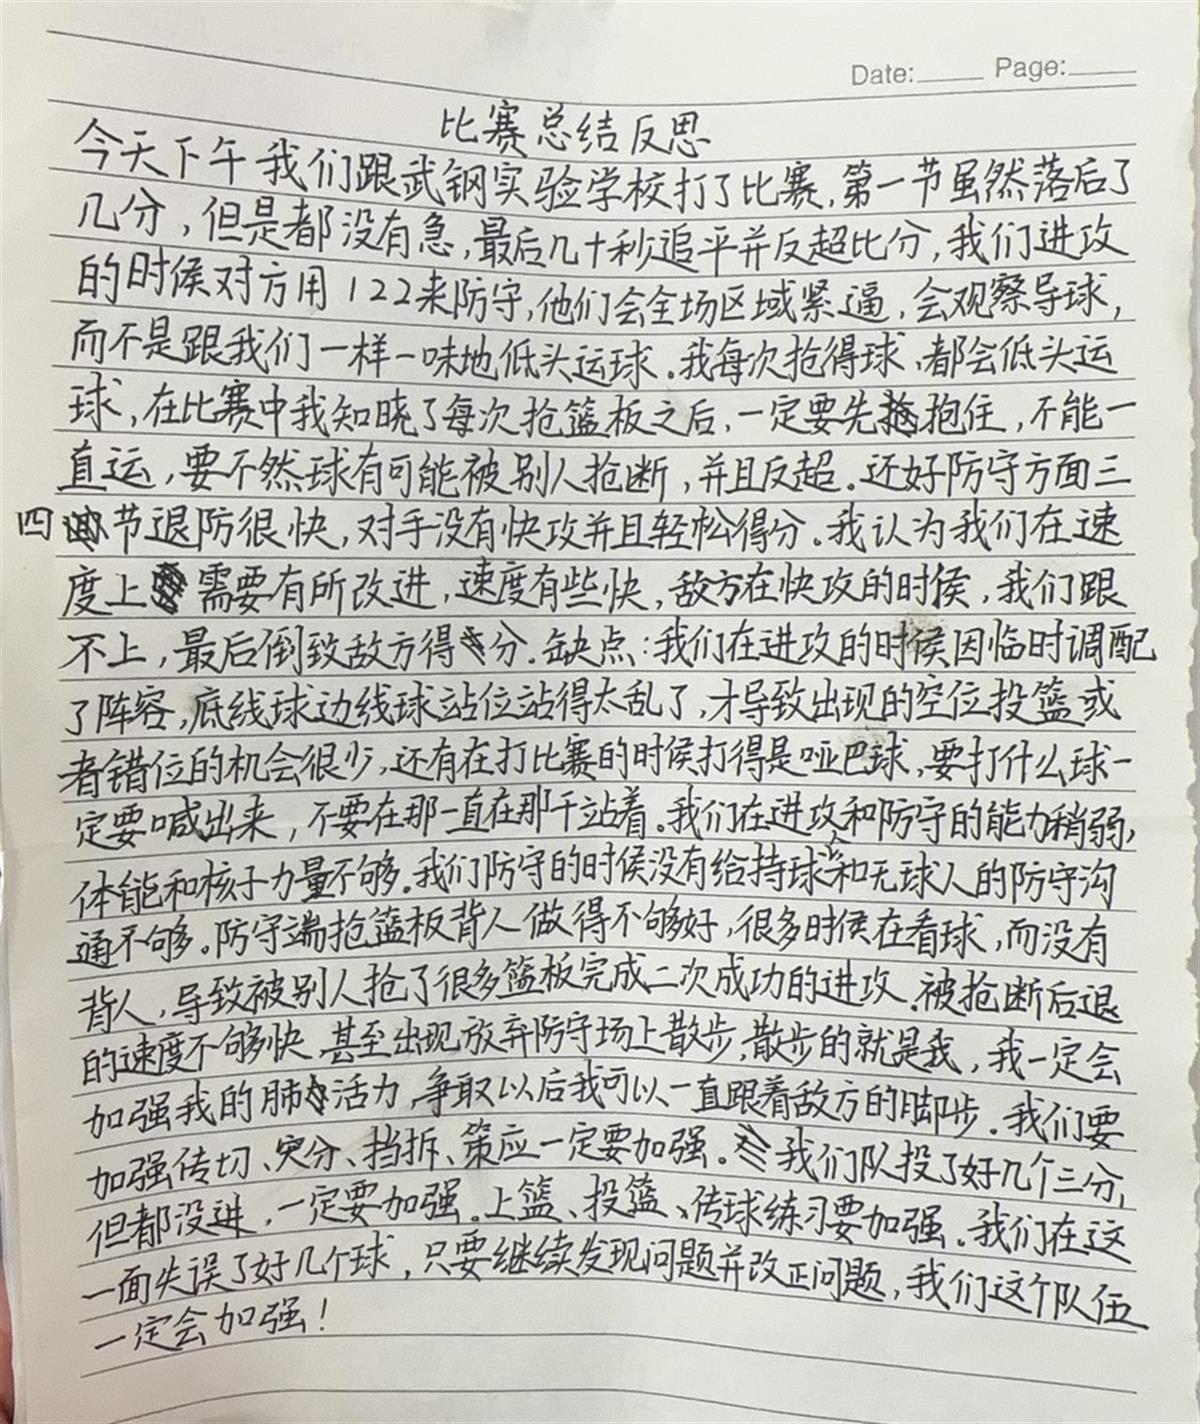 Date: Page:
比赛总结反思
今天下午我们跟武钢实验学校打了比赛,第一节虽然落后了
几分,但是都没有急,最后几十秒追平并反超比分,我们进攻
的时侯对方用122来防守,他们会全场区域紧逼,会观察导球,
而不是跟我们一样一味地低头运球.我每次抢得球、都会低头运
球,在比赛中我知晓了每次抢篮板之后,一定要先抱住,不能一
直运,要不然球有可能被别人抢断,并且反超.还好防守方面三
四节退防很快,对手没有快攻并且轻松得分。我认为我们在速
度上需要有所改进,速度有些快,敌方在快攻的时侯,我们跟
不上,最后倒致敌方得分.缺点:我们在进攻的时侯因临时调配
了阵容,底线球边线球站位站得太乱了,才导致出现的空位投篮或
者错位的机会很少,还有在打比赛的时侯打得是哑巴球,要打什么球一
定要喊出来,不要在那一直在那干站着。我们在进攻和防守的能力稍弱,
体能和核子力量不够.我们防守的时侯没有给持球人和无球人的防守沟
通不够。防守端抢篮板背人做得不够好,很多时侯在看球,而没有
背人,导致被别人抢了很多篮板完成二次成功的进攻.被抢断后退
的速度不够快,甚至出现放弃防守场上散步,散步的就是我,我一定会
加强我的肺活力,争取以后我可以一直跟着敌方的脚步.我们要
加强传切、突分、挡拆、策应一定要加强。我们队投了好几个三分,
但都没进,一定要加强.上篮、投篮、传球练习要加强。我们在这
一面失误了好几个球,只要继续发现问题并改正问题,我们这个队伍
一定会加强!